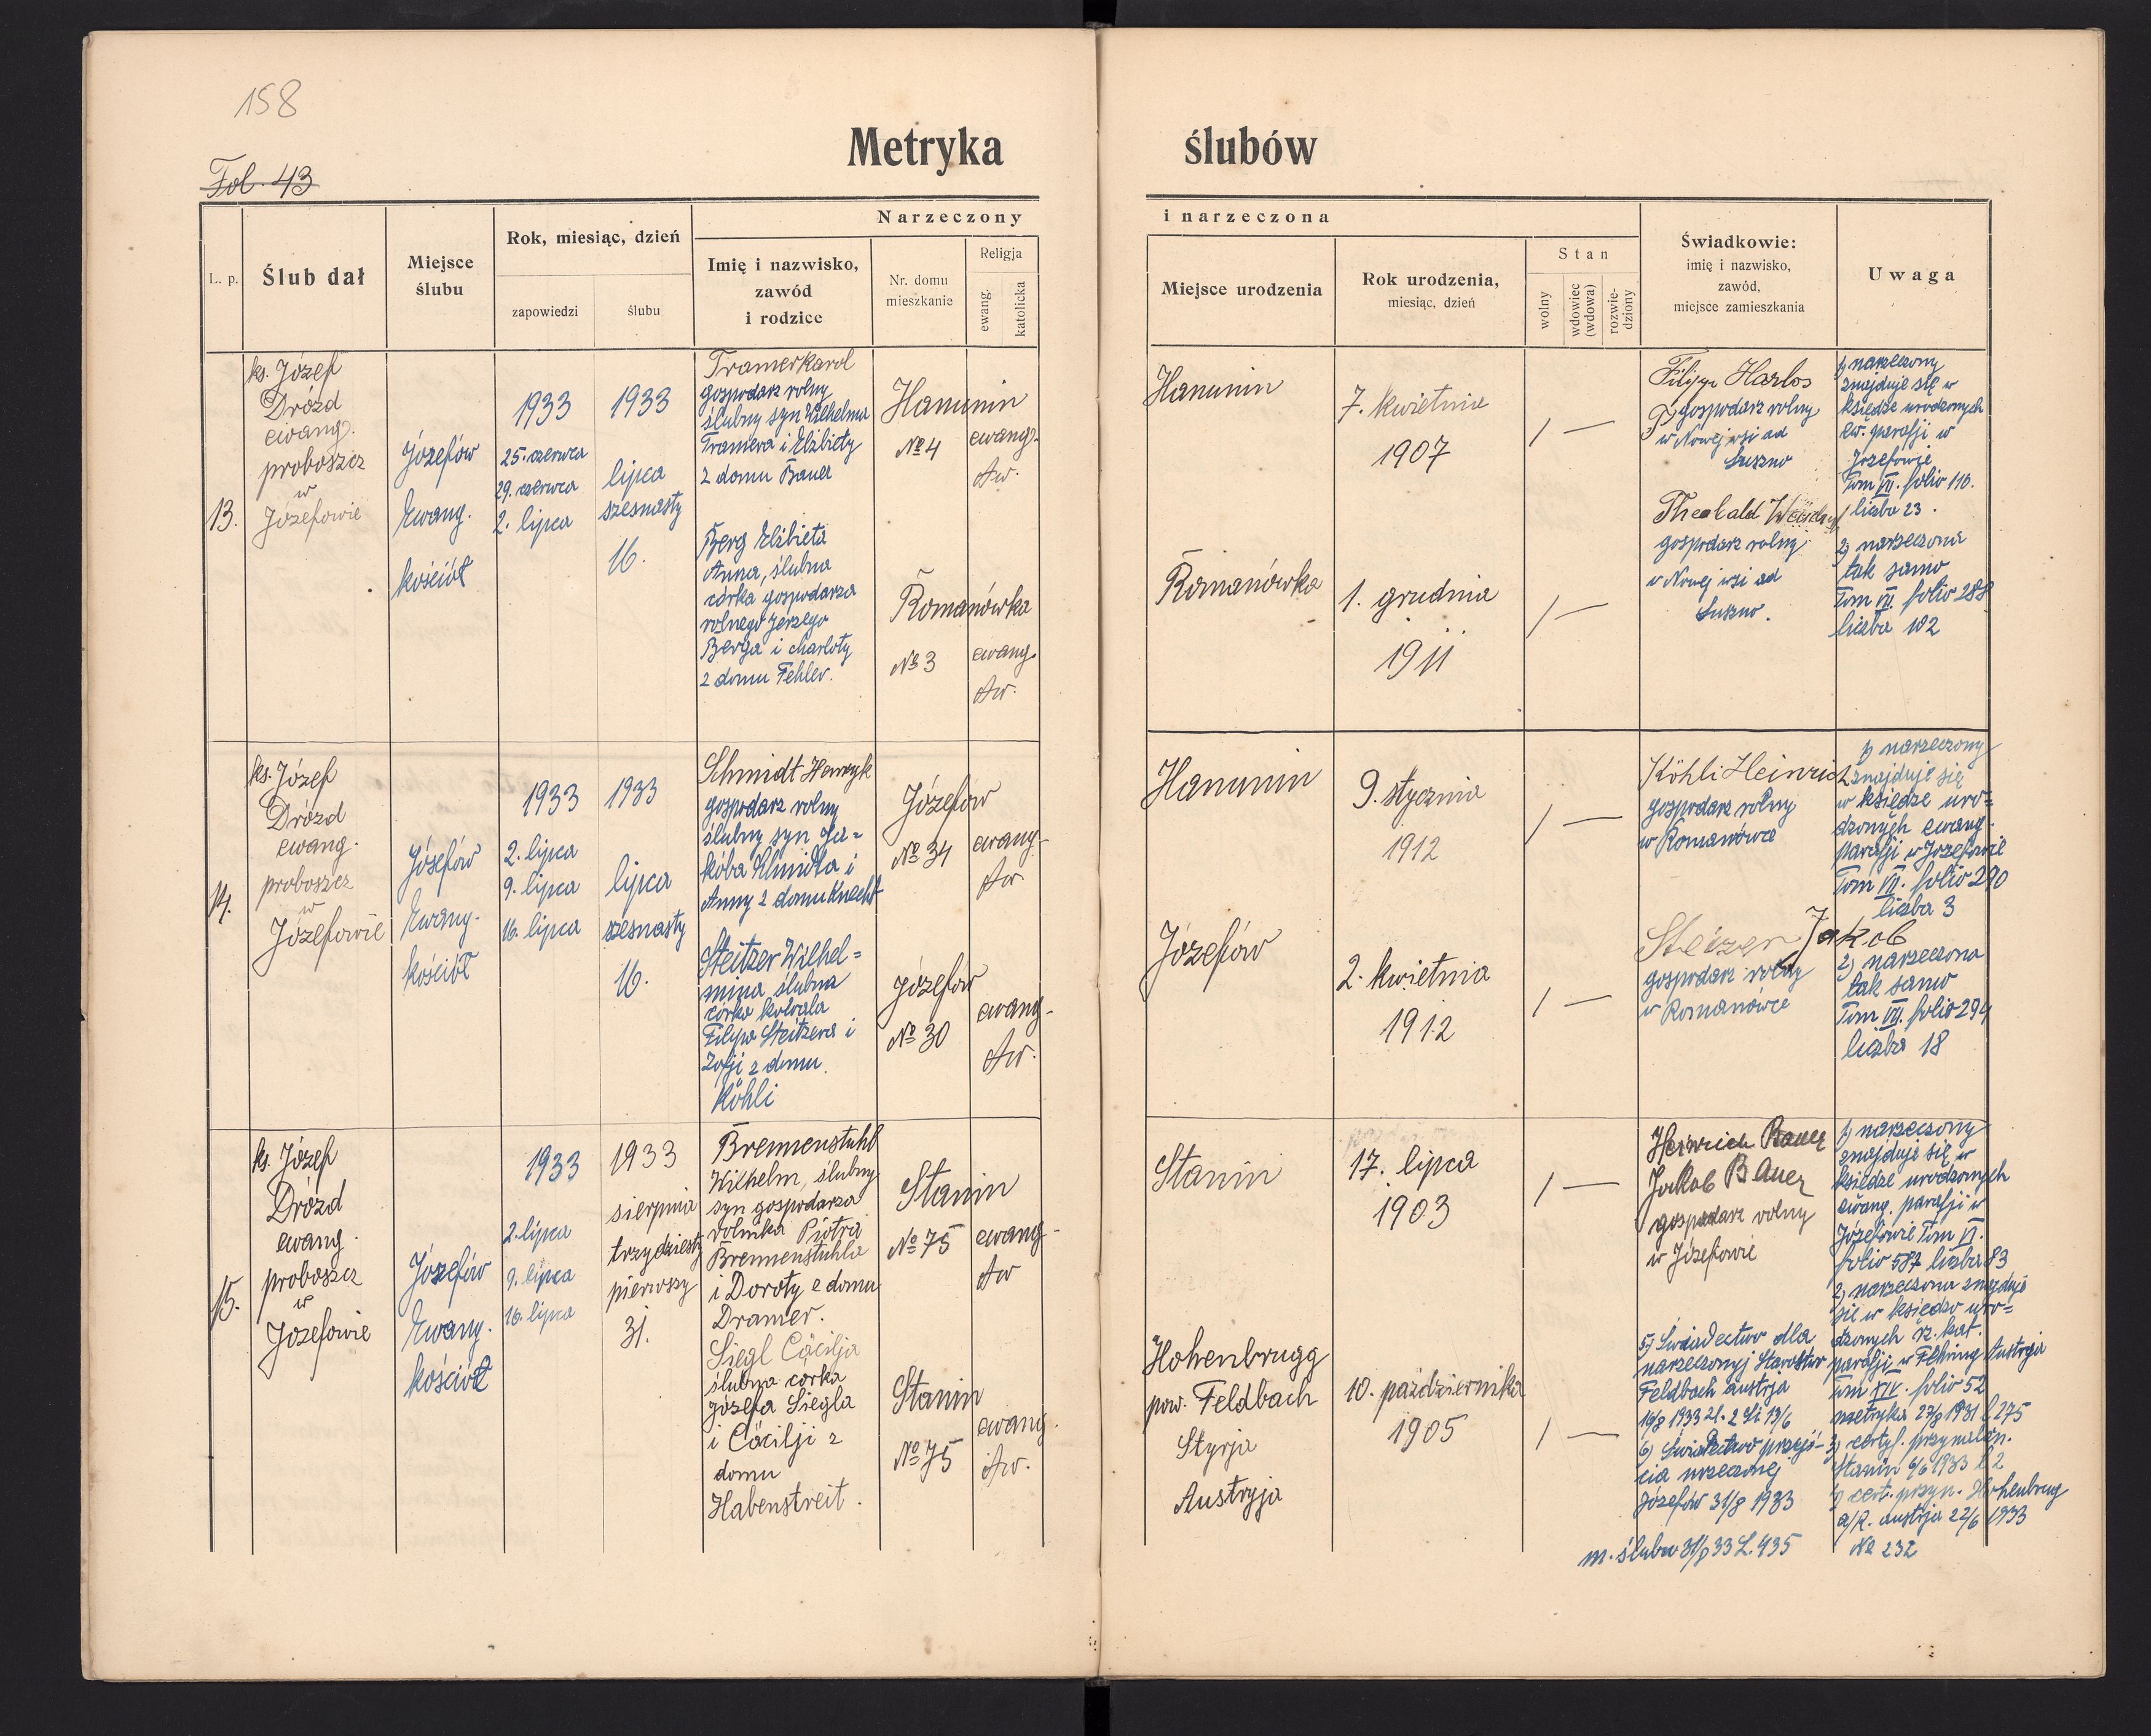 158
Metryka ślubów
Fol. 43
L. p.
Ślub dał
Miejsce
ślubu
Rok, miesiąc, dzień
zapowiedzi
ślubu
Narzeczony
Imię i nazwisko,
zawód
i rodzice
Nr. domu
mieszkanie
Religja
ewang.
katolicka
i narzeczona
Miejsce urodzenia
Rok urodzenia,
miesiąc, dzień
Stan
wolny
wdowiec
(wdowa)
rozwie-
dziony
Świadkowie:
imię i nazwisko,
zawód,
miejsce zamieszkania
Uwaga
13.
ks. Józef
Drózd
ewang.
proboszcz
w
Józefowie
Józefów
Ewang.
kościół
1933
25. czerwca
29. czerwca
2. lipca
1933
lipca
szesnasty
16.
Tramer Karol
gospodarz rolny
ślubny syn Wilhelma
Tramera i Elżbiety
z domu Bauer
Hanunin
№ 4
ewang.
Aw.
Berg Elżbieta
Anna, ślubna
córka gospodarza
rolnego Jerzego
Berga i Charloty
z domu Fehler.
Romanówka
№ 3
ewang.
Aw.
Hanunin
7. kwietnia
1907
/ —
Romanówka
1. grudnia
1911
/ —
Filipp Harlos
gospodarz rolny
w Nowej wsi ad
Suszno
Theobald
gospodarz rolny
w Nowej wsi ad
Suszno.
1) narzeczony
znajduje się w
księdze urodzonych
ew. parafji w
Józefowie
Tom VII. folio 110.
liczba 23.
2) narzeczona
tak samo
Tom VII. folio 288
liczba 102
14.
ks. Józef
Drózd
ewang.
proboszcz
w
Józefowie
Józefów
Ewang.
kościół
1933
2. lipca
9. lipca
16. lipca
1933
lipca
szesnasty
16.
Schmidt Henryk
gospodarz rolny
ślubny syn Ja=
kóba Schmidta i
Anny z domu Knecht
Józefów
№ 34
ewang.
Aw.
Steitzer Wilhel=
mina ślubna
córka kowala
Filipa Steitzera i
Zofji z domu
Köhli
Józefów
№ 30
ewang.
Aw.
Hanunin
9. stycznia
1912
/ —
Józefów
2. kwietnia
1912
/ —
Köhli Heinrich
gospodarz rolny
w Romanówce
Steizer Jakob
gospodarz rolny
w Romanówce
1) narzeczony
znajduje się
w księdze uro=
dzonych ewang.
parafji w Józefowie
Tom VII. folio 290
liczba 3
2) narzeczona
tak samo
Tom VII. folio 294
liczba 18
15.
ks. Józef
Drózd
ewang.
proboszcz
w
Józefowie
Józefów
Ewang.
kościół
1933
2. lipca
9. lipca
16. lipca
1933
sierpnia
trzydziesty
pierwszy
31.
Bremenstuhl
Wilhelm, ślubny
syn gospodarza
rolnika Piotra
Bremenstuhla
i Doroty z domu
Dramer.
Stanin
№ 75
ewang.
Aw
Siegl Cäcilja
ślubna córka
Józefa Siegla
i Cäcilji z
domu
Habenstreit.
Stanin
№ 75
ewang.
Aw.
Stanin
17. lipca
1903
/ —
Hohenbrugg
pow. Feldbach
Styrja
Austryja
10. października
1905
/ —
Heinrich Bauer
Jakob Bauer
gospodarz rolny
w Józefowie
5) Świadectwo dla
narzeczonej Starostwo
Feldbach austrja
6) Świadectwo przejś-
cia
Józefów 31/8 1933
m. ślubu 31/8 33 L. 435
1) narzeczony
znajduje się w
księdze urodzonych
ewang. parafji w
Józefowie Tom VI.
folio 587 liczba 83
2) narzeczona znajduje
się w księdze uro=
dzonych rz. kat.
parafji w Fehring Austrja
Tom XIV. folio 52
metryka 27/8 1931 l 275
3) certyf. przynależn.
Stanin 6/6 1933 l 2
cert. przyn. Hohenbrug
a/R. austrja 22/6 1933
№ 232